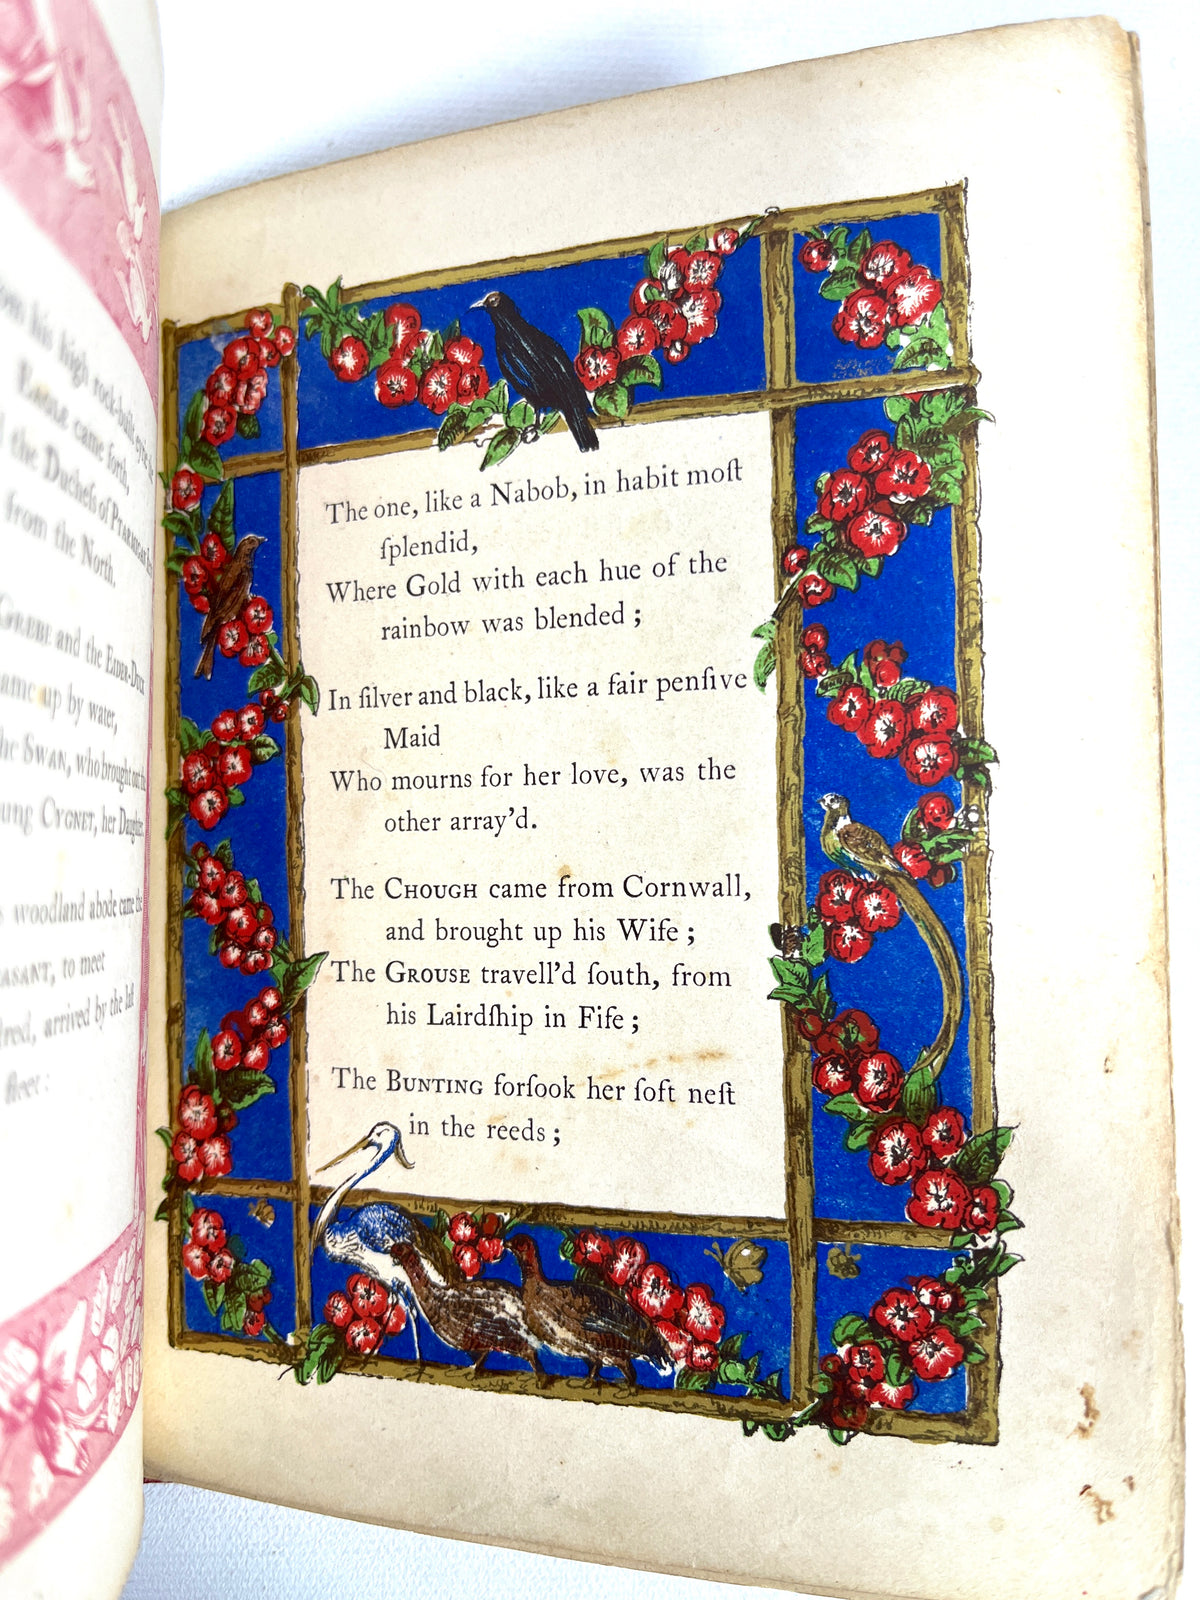 his high rock-built
EAGLE came forth,
the Ducheſs of PTARMIGAN
from the North.
GREBE and the EIDER-DUCK
up by water,
SWAN, who brought out
CYGNET, her Daughter.
woodland abode came the
to meet
arrived by the laſt
fleet:
The one, like a Nabob, in habit moſt
ſplendid,
Where Gold with each hue of the
rainbow was blended;
In ſilver and black, like a fair penſive
Maid
Who mourns for her love, was the
other array’d.
The CHOUGH came from Cornwall,
and brought up his Wife;
The GROUSE travell’d ſouth, from
his Lairdſhip in Fife;
The BUNTING forſook her ſoft neſt
in the reeds;